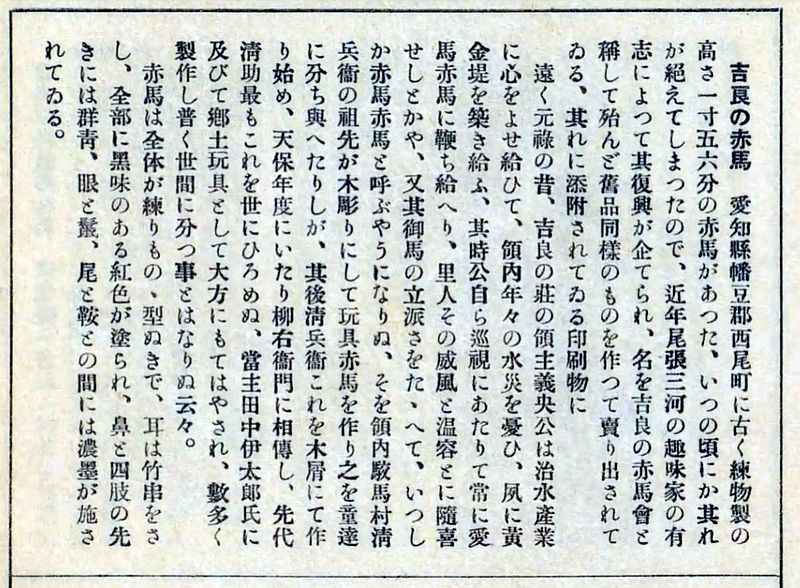 吉良の赤馬　愛知縣幡豆郡西尾町に古く練物製の
高さ一寸五六分の赤馬があつた、いつの頃にか其れ
が絕えてしまつたので、近年尾張三河の趣味家の有
志によつて其復興が企てられ、名を吉良の赤馬會と
稱して殆んど舊品同樣のものを作つて賣り出されて
ゐる、其れに添附されてゐる印刷物に
遠く元祿の昔、吉良の莊の領主義央公は治水產業
に心をよせ給ひて、領內年々の水災を憂ひ、夙に黃
金堤を築き給ふ、其時公自ら巡視にあたりて常に愛
馬赤馬に鞭ち給へり、里人その威風と溫容とに隨喜
せしとかや、又其御馬の立派さをたゝへて、いつし
か赤馬赤馬と呼ぶやうになりぬ、そを領內駮馬村淸
兵衞の祖先が木彫りにして玩具赤馬を作り之を童達
に分ち與へたりしが、其後淸兵衞これを木屑にて作
り始め、天保年度にいたり柳右衞門に相傳し、先代
淸助最もこれを世にひろめぬ、當主田中伊太郞氏に
及びて鄕土玩具として大方にもてはやされ、數多く
製作し普く世間に分つ事とはなりぬ云々。
赤馬は全体が練りもの、型ぬきで、耳は竹串をさ
し、全部に黑味のある紅色が塗られ、鼻と四肢の先
きには群靑、眼と鬣、尾と鞍との間には濃墨が施さ
れてゐる。